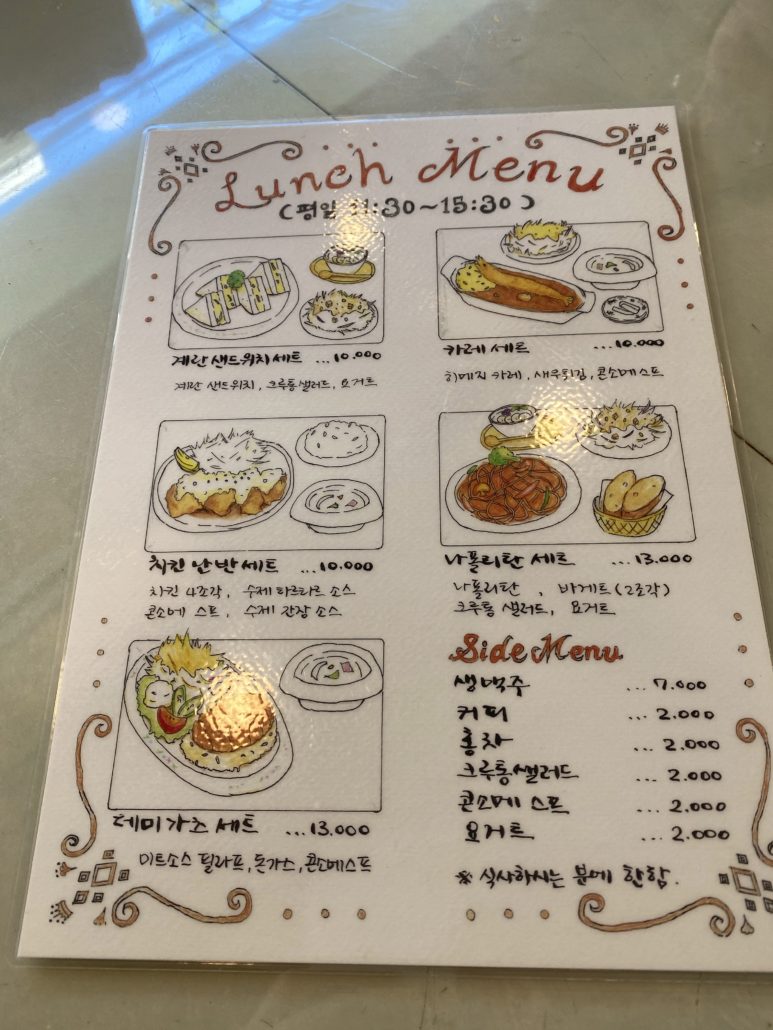 Lunch Menu
(평일 11:30~15:30)
계란 샌드위치 세트 ...10.000
계란 샌드위치, 크루통샐러드, 요거트
카레 세트 ...10.000
히메지 카레, 새우튀김, 콘소메스프
치킨 난반 세트 ...10.000
치킨 4조각, 수제 타르타르 소스
콘소메 스프, 수제 간장 소스
나폴리탄 세트 ...13.000
나폴리탄, 바게트(2조각)
크루통 샐러드, 요거트
데미가츠 세트 ...13.000
미트소스 필라프, 돈가스, 콘소메스프
Side Menu
생맥주 ...7.000
커피 ...2.000
홍차 ...2.000
크루통샐러드 ...2.000
콘소메 스프 ...2.000
요거트 ...2.000
※ 식사하시는 분에 한함.